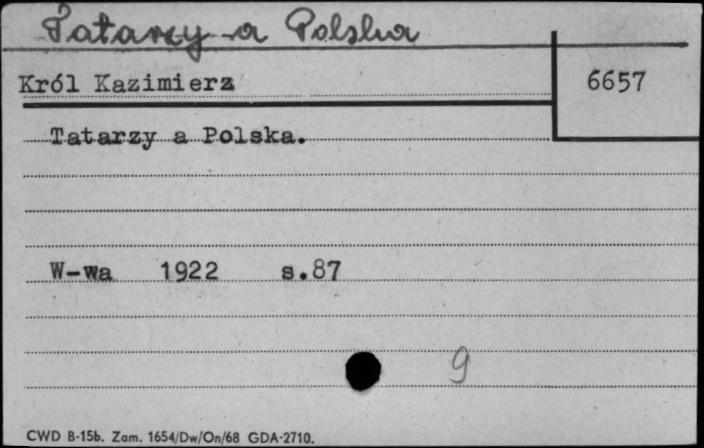 Tatarzy a Polska
Król Kazimierz 6657
Tatarzy a Polska.
W-wa 1922 s.87
9
CWD B-15b. Zam. 1654/Dw/On/68 GDA-2710.